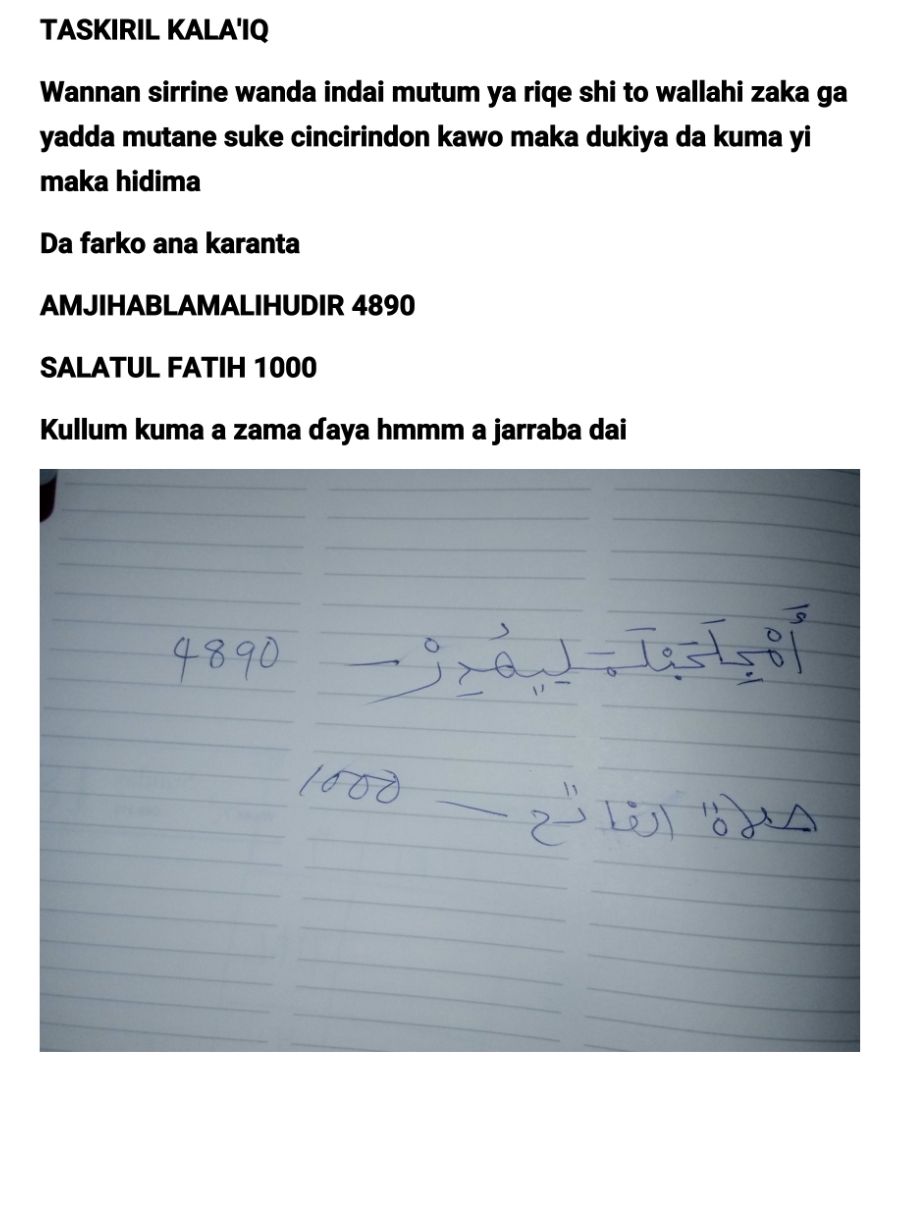 TASKIRIL KALA'IQ
Wannan sirrine wanda indai mutum ya riqe shi to wallahi zaka ga
yadda mutane suke cincirindon kawo maka dukiya da kuma yi
maka hidima
Da farko ana karanta
AMJIHABLAMALIHUDIR 4890
SALATUL FATIH 1000
Kullum kuma a zama ɗaya hmmm a jarraba dai
4890
صلاة الفاتح — 1000